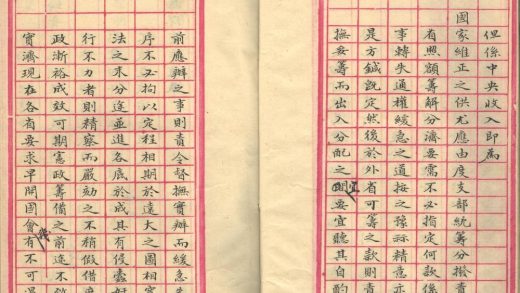 但係中央收入即為
國家維正之供尤應由度支部統籌分撥責
有照額籌解分濟要需不必指定何款係
事轉失通權緩急之道按之豫祘精意亦
是方鍼既定然後於外省可籌之款則責
撫妥籌而出入分配之間要宜聽其自酌
前應辦之事則責令督撫實辦而緩急
序不必拘以定程相期於遠大之圖相
法之未分途並進各底於成其有侵蠹
行不力者則精察而嚴劾之不稍假借
政漸裕成效可期憲政籌備之前途不致
實濟現在各省要求早開國會有不可